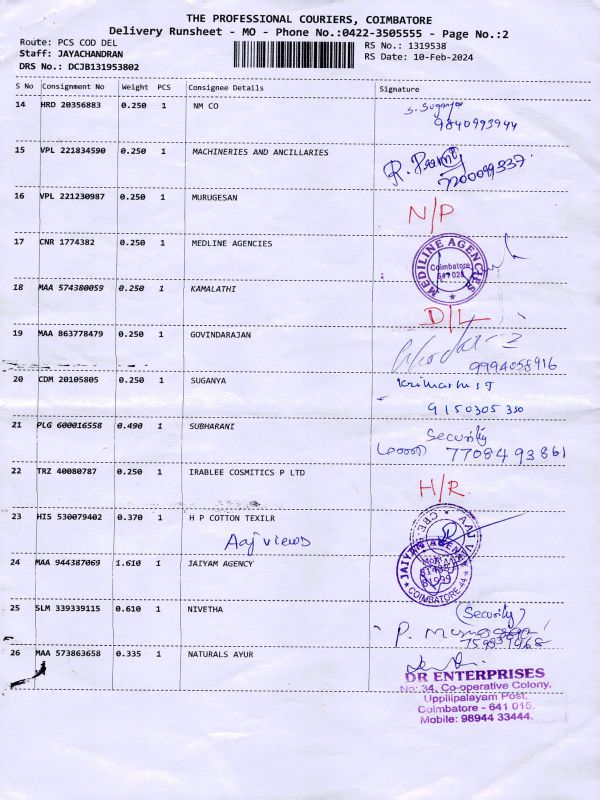 THE PROFESSIONAL COURIERS, COIMBATORE
Delivery Runsheet - MO - Phone No.:0422-3505555 - Page No.:2
Route: PCS COD DEL
RS No.: 1319538
Staff: JAYACHANDRAN
RS Date: 10-Feb-2024
DRS No.: DCJB131953802
S No Consignment No Weight PCS Consignee Details Signature
14 HRD 20356883 0.250 1 NM CO
S. Suganya
9840993944
15 VPL 221834590 0.250 1 MACHINERIES AND ANCILLARIES
7200099337
16 VPL 221230987 0.250 1 MURUGESAN
N/P
17 CNR 1774382 0.250 1 MEDLINE AGENCIES
MEDILINE AGENCIES
Coimbatore
641 028
18 MAA 574380059 0.250 1 KAMALATHI
D/L
19 MAA 863778479 0.250 1 GOVINDARAJAN
9994058916
20 CDM 20105805 0.250 1 SUGANYA
9150305350
21 PLG 600016558 0.490 1 SUBHARANI
Security
7708493861
22 TRZ 40080787 0.250 1 IRABLEE COSMITICS P LTD
H/R
23 HIS 530079402 0.370 1 H P COTTON TEXILR
Aaj views
24 MAA 944387069 1.610 1 JAIYAM AGENCY
COIMBATORE-44
25 SLM 339339115 0.610 1 NIVETHA
(Security)
26 MAA 573863658 0.335 1 NATURALS AYUR
DR ENTERPRISES
No: 34, Co-operative Colony,
Uppilipalayam Post,
Coimbatore - 641 015.
Mobile: 98944 33444.